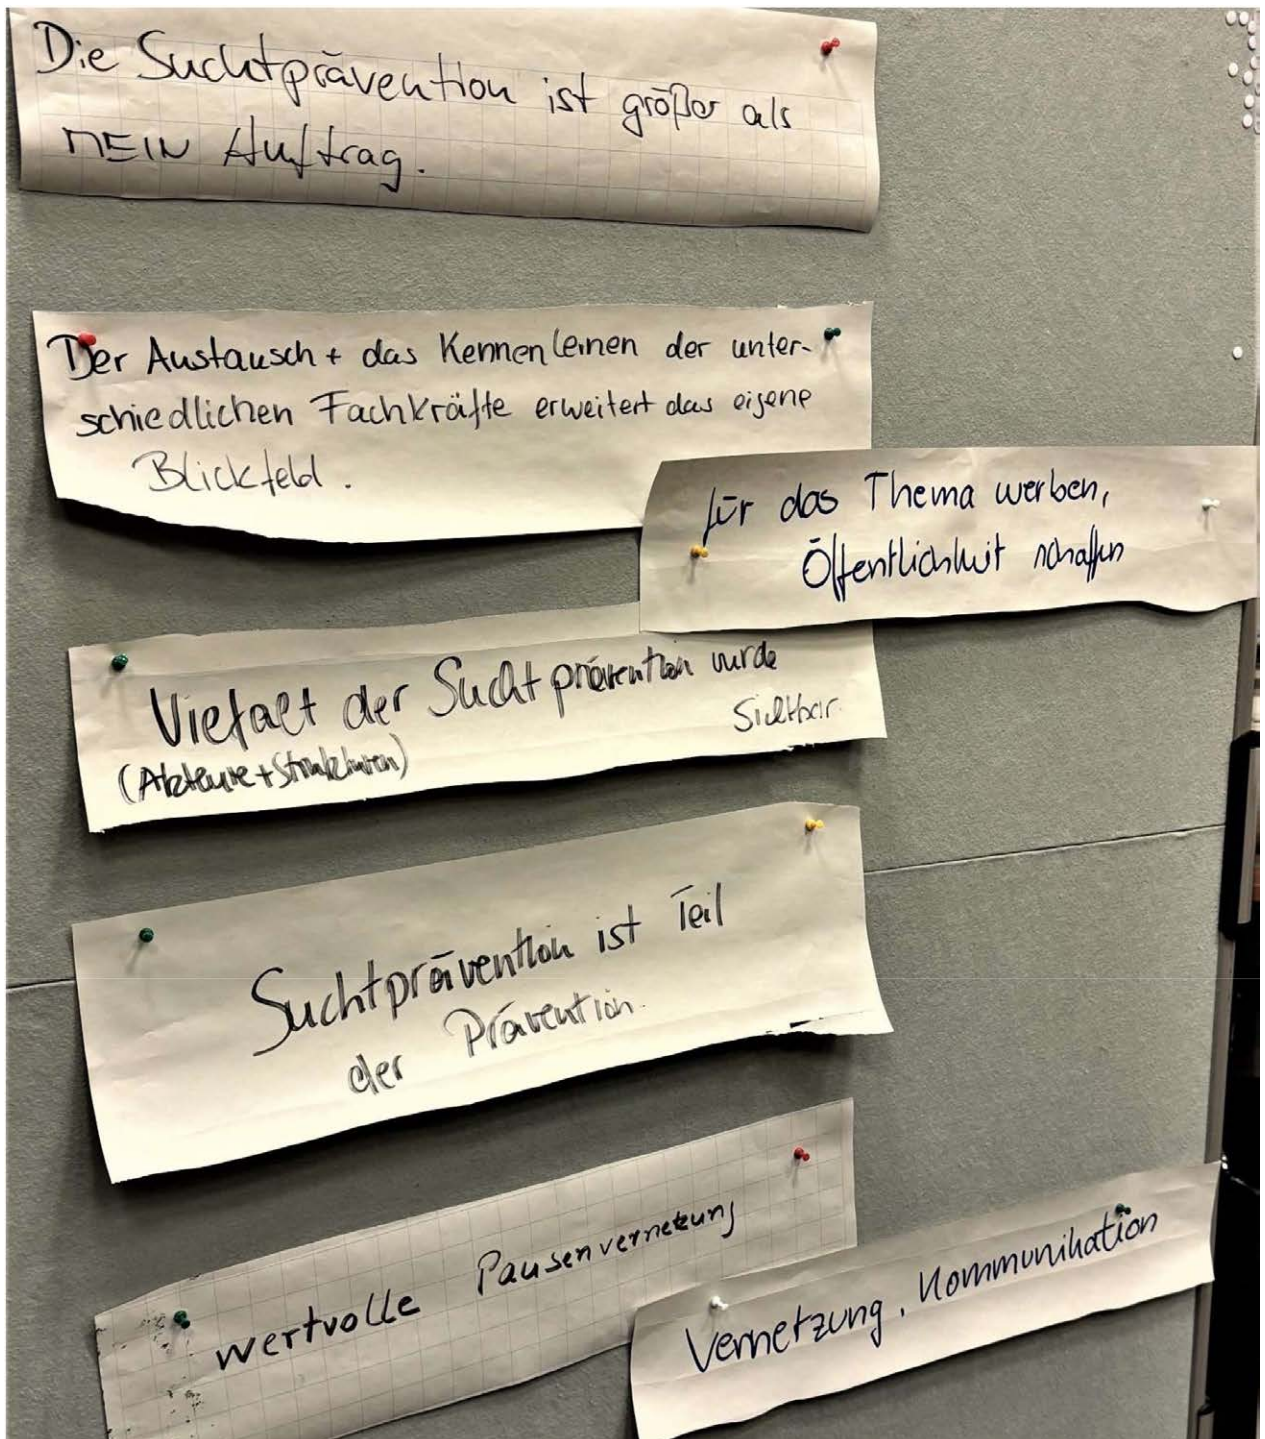 Die Suchtprävention ist größer als
MEIN Auftrag.
Der Austausch + das Kennenlernen der unter-
schiedlichen Fachkräfte erweitert das eigene
Blickfeld.
für das Thema werben,
Öffentlichkeit schaffen
Vielfalt der Suchtprävention wurde
Sichtbar.
(Akteure + Strukturen)
Suchtprävention ist Teil
der Prävention.
wertvolle Pausenvernetzung
Vernetzung, Kommunikation